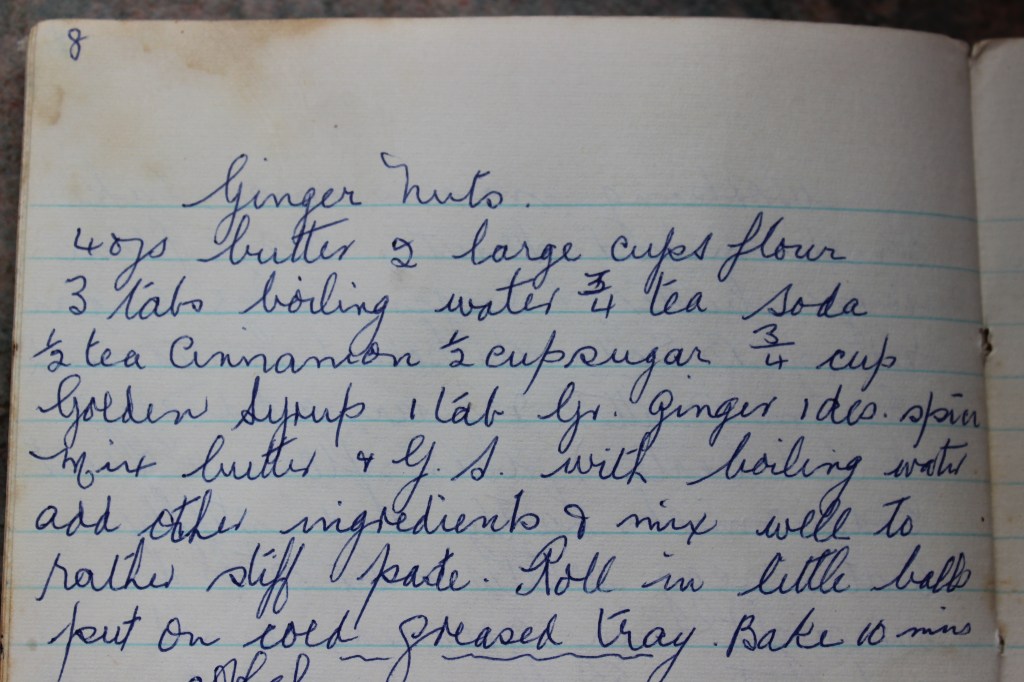 8
Ginger Nuts.
4 ozs butter 2 large cups flour
3 tabs boiling water 3/4 tea soda
1/2 tea Cinnamon 1/2 cup sugar 3/4 cup
Golden Syrup 1 tab Gr. Ginger 1 des. spice
Mix butter & G. S. with boiling water
add other ingredients & mix well to
rather stiff paste. Roll in little balls
put on cold greased tray. Bake 10 mins